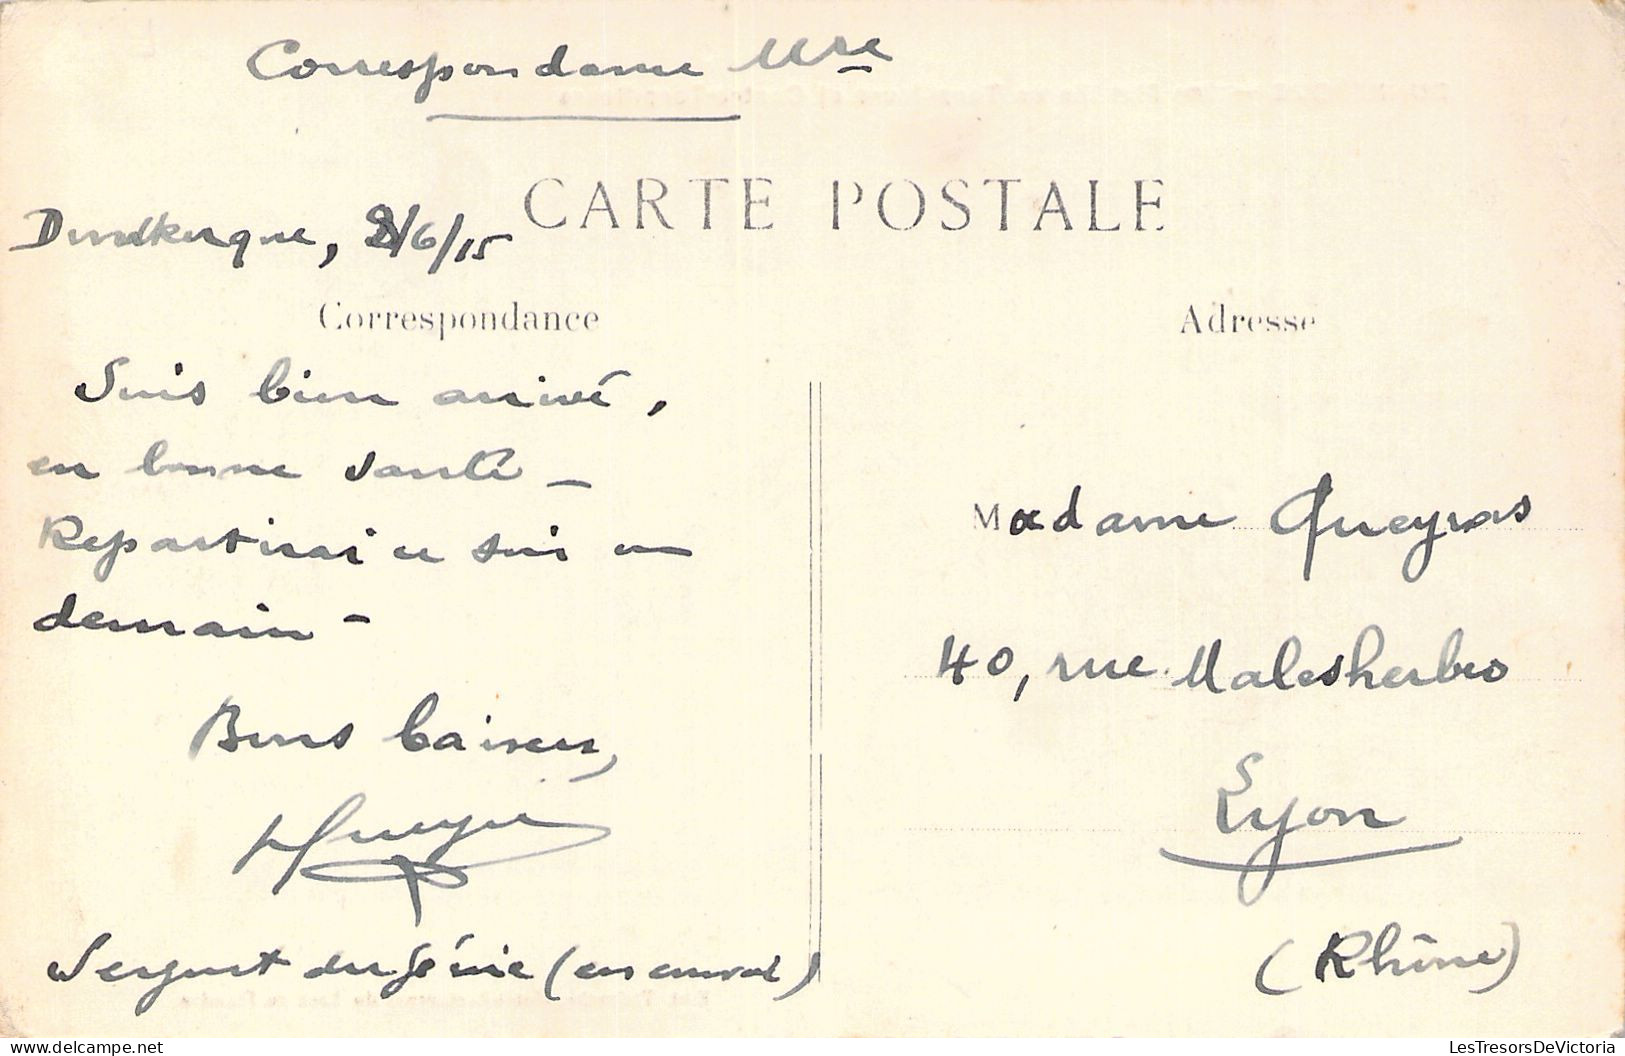 Correspondance Mre
CARTE POSTALE
Dunkerque, 8/6/15
Correspondance
Suis bien arrivé,
en bonne santé –
Repartirai ce soir ou
demain –
Bons baisers,
Sergent du Génie (en convoi)
Adresse
Madame Queyras
40, rue Malesherbes
Lyon
(Rhône)
LesTresorsDeVictoria